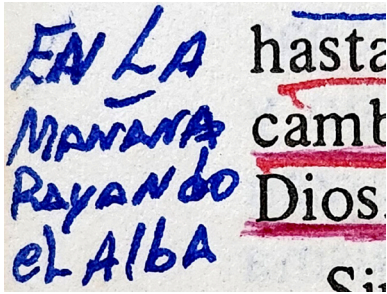 EN LA
MAÑANA
RAyANdo
eL AlbA
hasta
camb
Dios.
Si